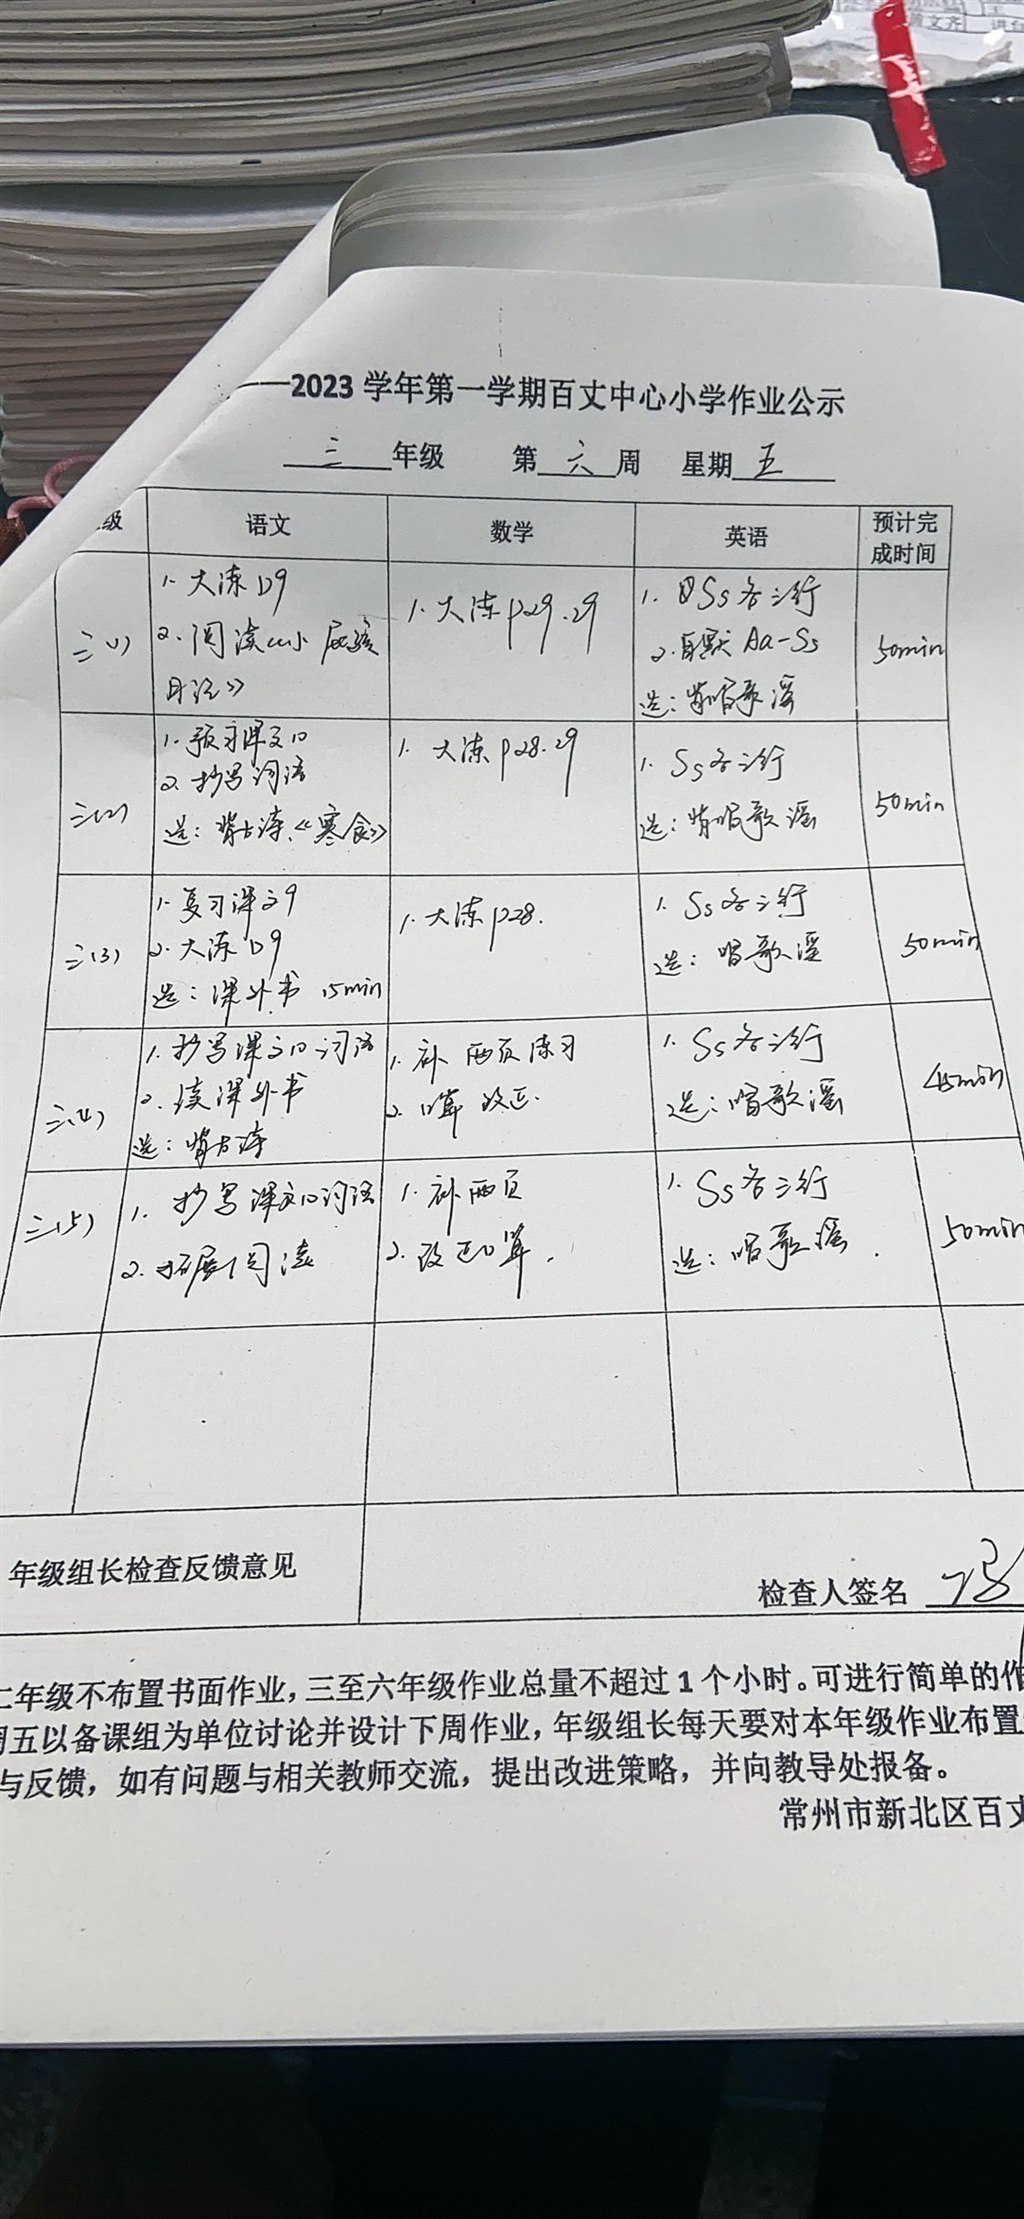 —2023 学年第一学期百丈中心小学作业公示
三 年级 第 六 周 星期 五
级 语文 数学 英语 预计完成时间
三(1)
1. 大练 D9
2. 阅读《小屁孩
日记》
1. 大练 P29.29
1. Ss各三行
2. 自默 Aa-Ss
选：背唱歌谣
50min
三(2)
1. 预习课文10
2. 抄写词语
选：背古诗《寒食》
1. 大练 P28.29
1. Ss各三行
选：背唱歌谣
50min
三(3)
1. 复习课文9
2. 大练 D9
选：课外书 15min
1. 大练 P28.
1. Ss各三行
选：唱歌谣
50min
三(4)
1. 抄写课文10词语
2. 读课外书
选：背古诗
1. 补两页练习
2. 口算改正.
1. Ss各三行
选：唱歌谣
45min
三(5)
1. 抄写课文10词语
2. 拓展阅读
1. 补两页
2. 改正口算.
1. Ss各三行
选：唱歌谣.
50min
年级组长检查反馈意见
检查人签名
二年级不布置书面作业，三至六年级作业总量不超过 1 个小时。可进行简单的作
周五以备课组为单位讨论并设计下周作业，年级组长每天要对本年级作业布置
与反馈，如有问题与相关教师交流，提出改进策略，并向教导处报备。
常州市新北区百丈